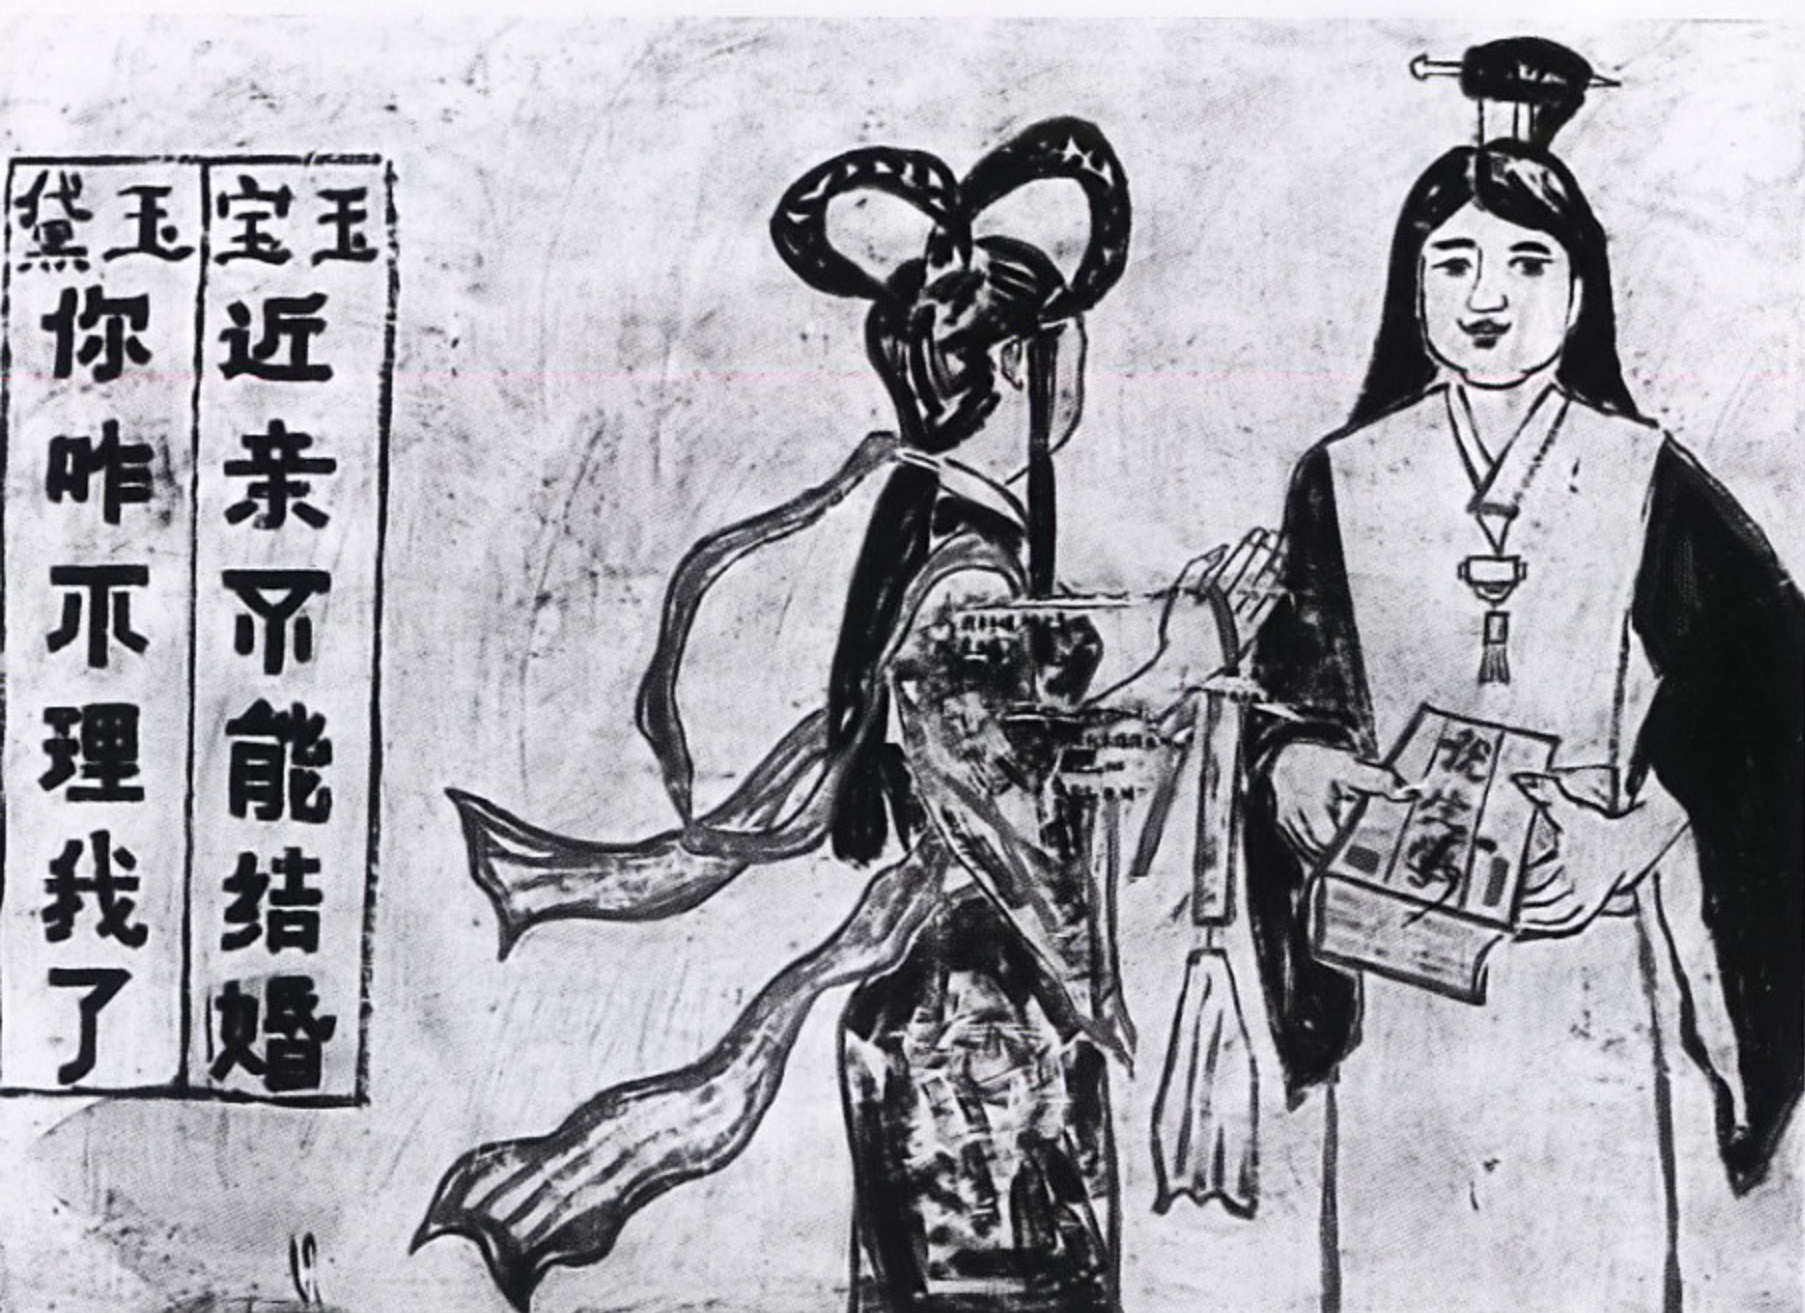 黛玉
你咋不理我了
宝玉
近亲不能结婚